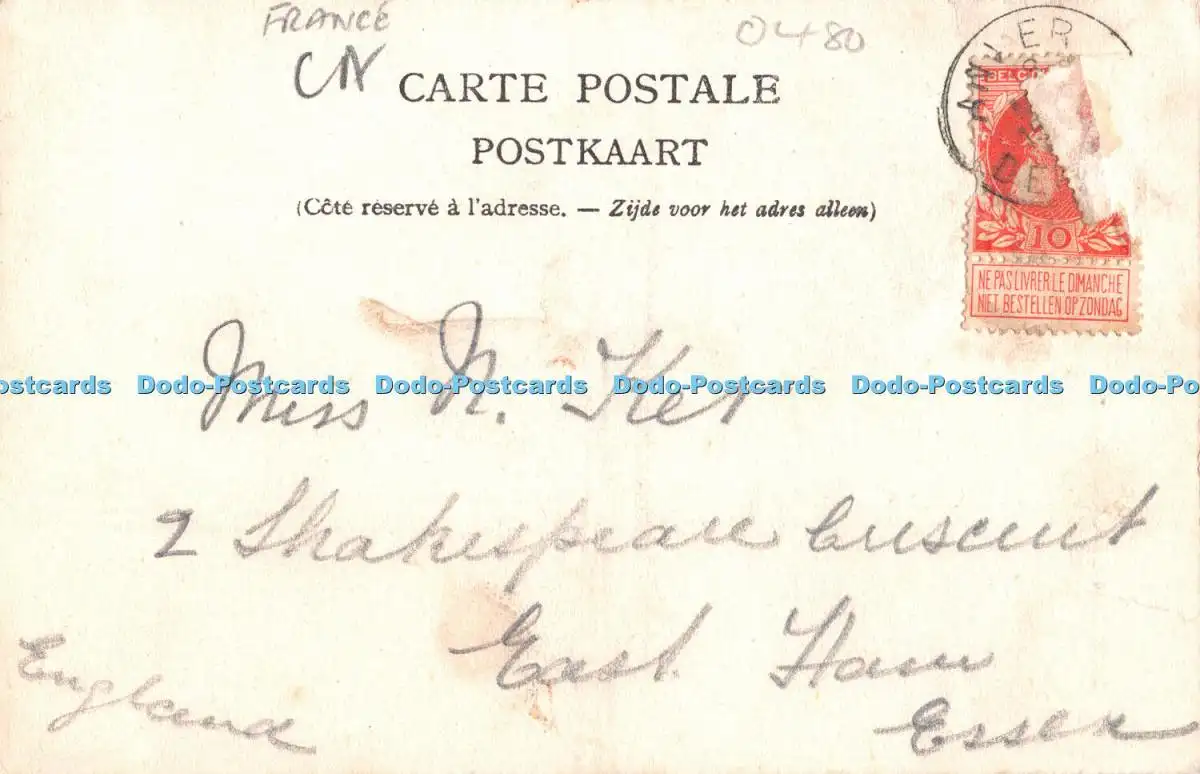 FRANCE
CN
0480
CARTE POSTALE
POSTKAART
(Côté réservé à l'adresse. — Zijde voor het adres alleen)
10
NE PAS LIVRER LE DIMANCHE
NIET BESTELLEN OP ZONDAG
Miss N. Ker
Dodo-Postcards Dodo-Postcards Dodo-Postcards Dodo-Postcards
2 Shakespeare Crescent
East Ham
England
Essex